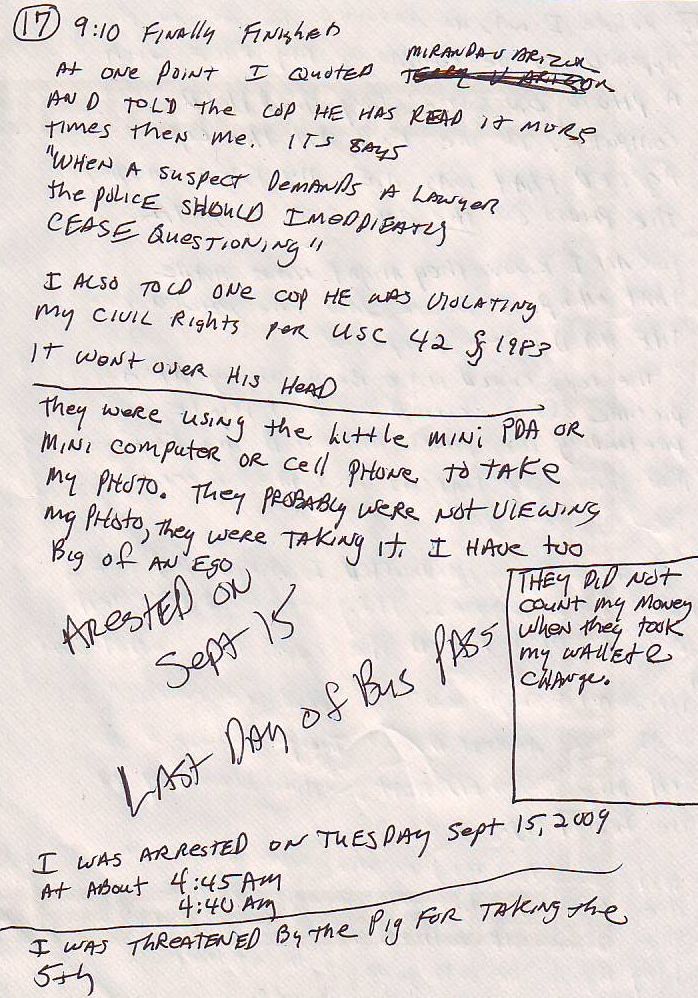 17 9:10 Finally Finished
MIRANDA V ARIZON
At one point I quoted TERRY V ARIZON
AND TOLD the COP HE HAS READ it MORE
times then me. ITS SAYS
"WHEN A SUSPECT DEMANDS A LAWYER
the POLICE SHOULD IMEDDIEATLY
CEASE QUESTIONING"
I ALSO TOLD ONE COP HE WAS VIOLATING
my CIVIL Rights per USC 42 § 1983
IT WENT OVER HIS HEAD
they were using the little mini PDA OR
MINI COMPUTER OR CELL PHONE TO TAKE
my PHOTO. They PROBABLY WERE NOT VIEWING
my PHOTO, they were TAKING IT. I HAVE too
Big of AN EGO
ARESTED ON
Sept 15
LAST DAY of BUS PASS
THEY DID NOT
count my Money
when they took
my WALLET &
CHANGE.
I WAS ARRESTED ON TUESDAY Sept 15, 2009
At About 4:45 AM
4:40 AM
I WAS THREATENED By the Pig FOR TAKING the
5th